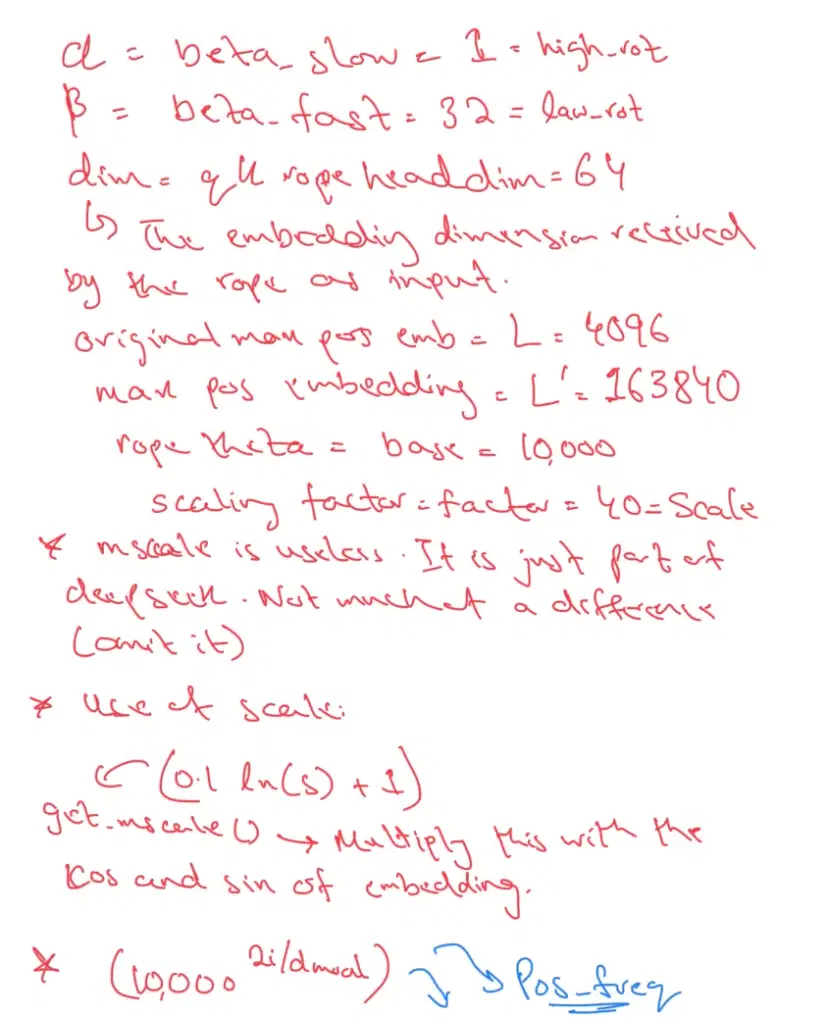 α = beta_slow = 1 = high_rot
β = beta_fast = 32 = law_rot
dim = qk rope head dim = 64
↳ The embedding dimension received
by the rope as input.
original max pos emb = L = 4096
max pos embedding = L' = 163840
rope theta = base = 10,000
scaling factor = factor = 40 = Scale
* mscale is useless. It is just part of
deepseek. Not much of a difference
(omit it)
* use of scale:
(0.1 ln(s) + 1)
get_mscale() → Multiply this with the
cos and sin of embedding.
* (10,000 2i/dmodal) Pos_freq